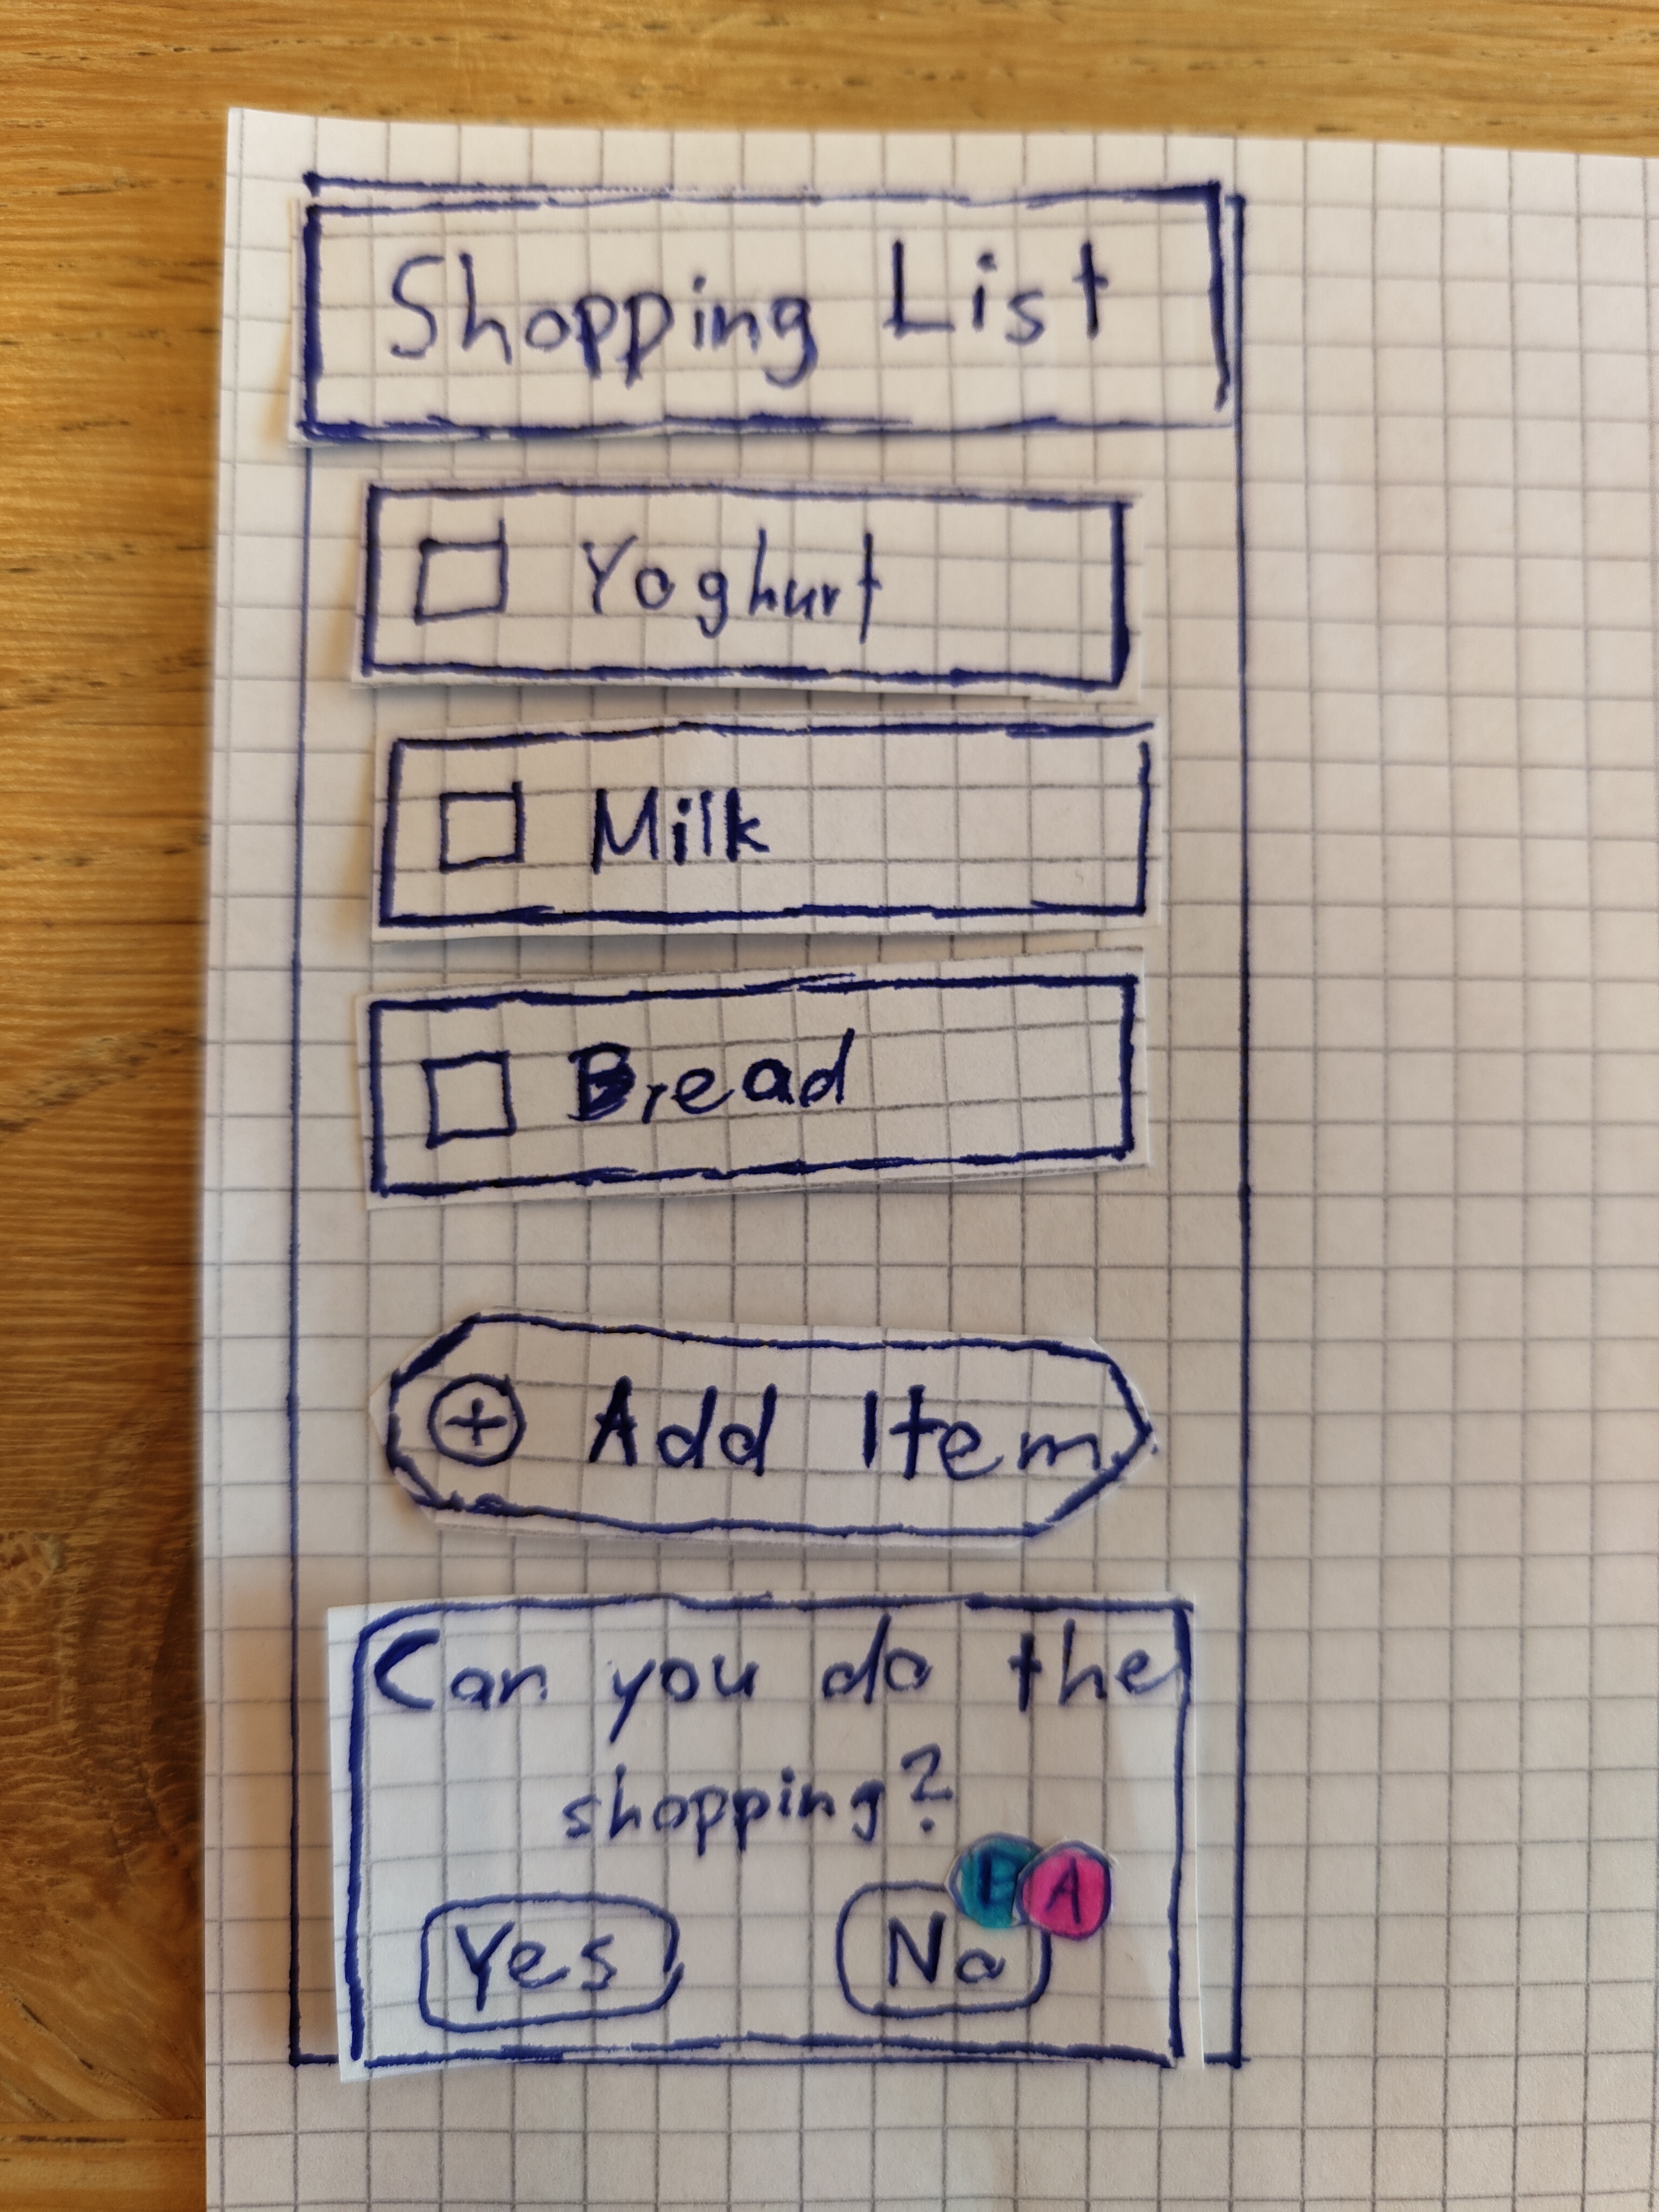 Shopping List
Yoghurt
Milk
Bread
+ Add Item
Can you do the
shopping?
A
Yes No